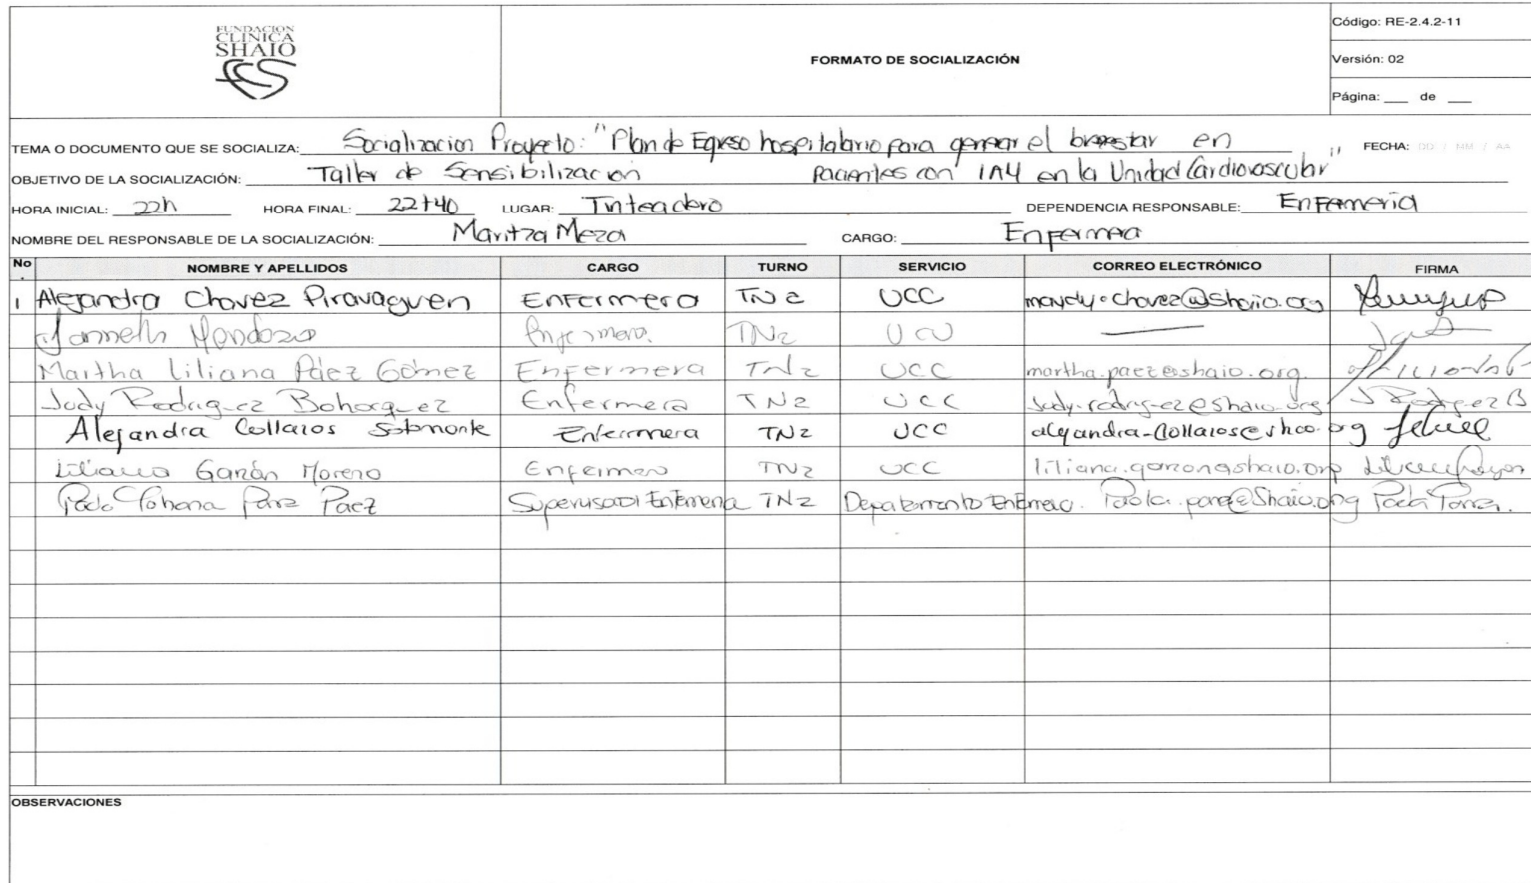 FUNDACION
CLINICA
SHAIO
FORMATO DE SOCIALIZACIÓN
Código: RE-2.4.2-11
Versión: 02
Página: ___ de ___
TEMA O DOCUMENTO QUE SE SOCIALIZA: Socializacion Proyecto: "Plan de Egreso hospitalario para generar el bienestar en FECHA: DD / MM / AA
OBJETIVO DE LA SOCIALIZACIÓN: Taller de Sensibilizacion pacientes con IAM en la Unidad Cardiovascular"
HORA INICIAL: 22h HORA FINAL: 22+40 LUGAR: Tinteadero DEPENDENCIA RESPONSABLE: Enfermeria
NOMBRE DEL RESPONSABLE DE LA SOCIALIZACIÓN: Maritza Meza CARGO: Enfermera
No. NOMBRE Y APELLIDOS CARGO TURNO SERVICIO CORREO ELECTRÓNICO FIRMA
1 Alejandra Chavez Piravaguen Enfermera TN2 UCC @shaio.org
Janneth Mendoza Enfermera. TN2
Martha Liliana Páez Gómez Enfermera TN2 UCC martha.paez@shaio.org.
Judy Rodriguez Bohorquez Enfermera TN2 UCC Judy.rodriguez@shaio.org J Rodriguez B
Alejandra Collazos Enfermera TN2 UCC
Liliana Garzón Moreno Enfermera TN2 UCC liliana.garzon@shaio.org
Paez Supervisora Enfermeria TN2 Departamento Enfermeria.
OBSERVACIONES